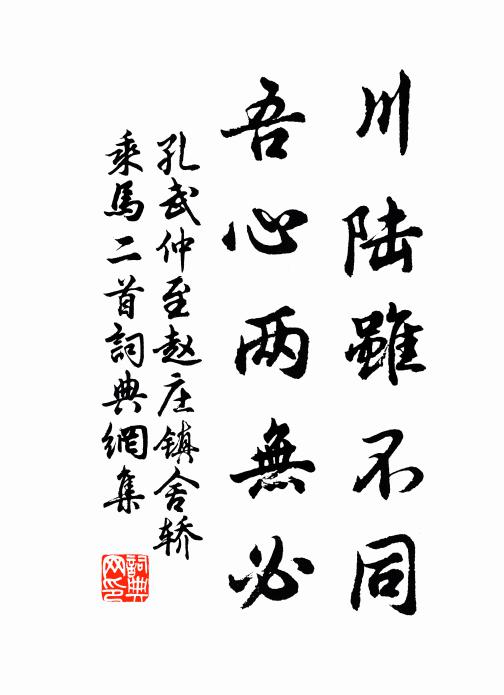 川陆雖不同
吾心两無必
孔武仲至赵庄镇舍轿
乘馬二首詞典網集
詞典
网印